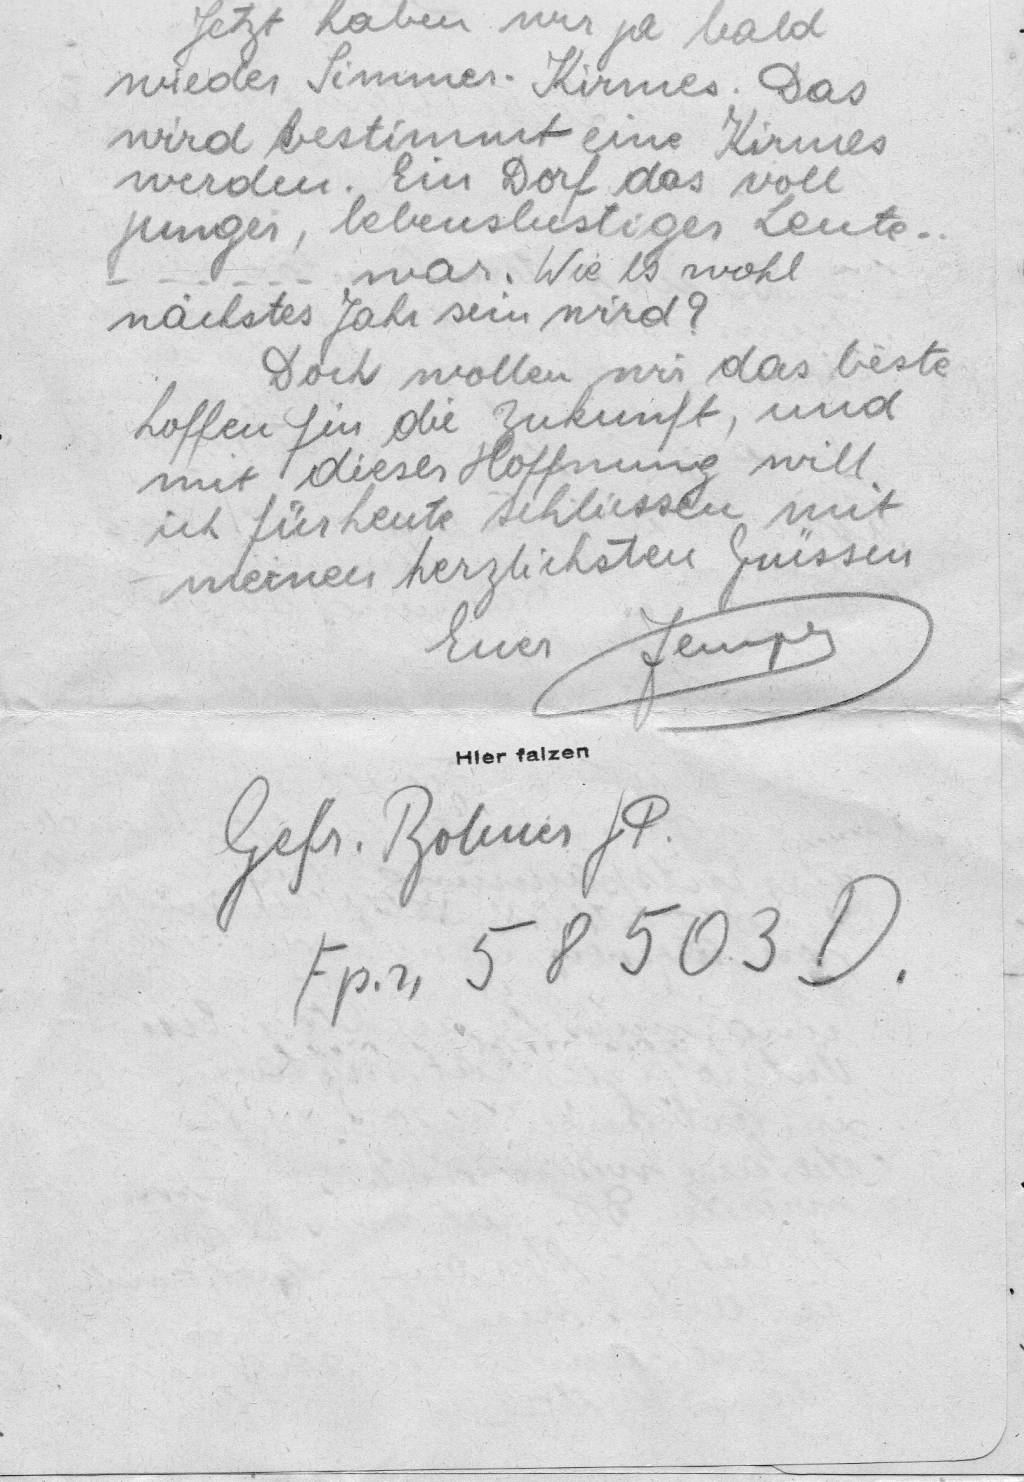 Jetzt haben wir ja bald
wieder Simmer-Kirmes. Das
wird bestimmt eine Kirmes
werden. Ein Dorf das voll
junger, lebenslustiger Leute..
- - - - - - war. Wie es wohl
nächstes Jahr sein wird?
Doch wollen wir das beste
hoffen für die Zukunft, und
mit dieser Hoffnung will
ich für heute schliessen mit
meinen herzlichsten Grüssen
Euer Jempy
Hier falzen
Gefr. Bohner JP.
Fp.n, 58503 D.